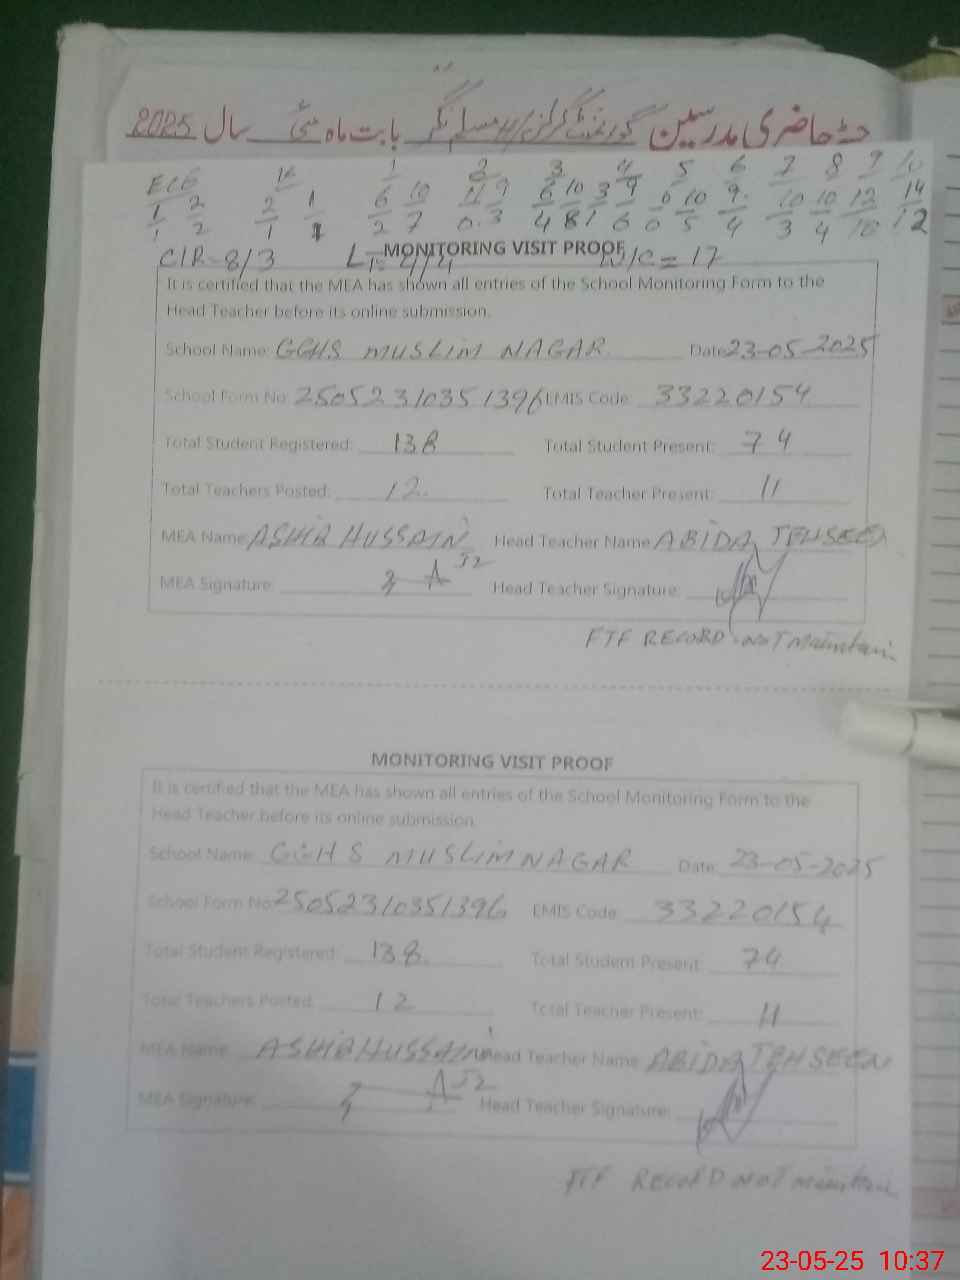 حاضری مدرسین گورنمنٹ گرلز مسلم نگر بابت ماہ مئی سال 2025
1 2 3 4 5 6 7 8 9 10
CIR-8/3 L = 4/4 = 17
MONITORING VISIT PROOF
It is certified that the MEA has shown all entries of the School Monitoring Form to the
Head Teacher before its online submission.
School Name: GGHS MUSLIM NAGAR Date 23-05-2025
School Form No: 25052310351396 EMIS Code: 33220154
Total Student Registered: 138 Total Student Present: 74
Total Teachers Posted: 12 Total Teacher Present: 11
MEA Name: ASHIQ HUSSAIN Head Teacher Name ABIDA TEHSEEN
MEA Signature: Head Teacher Signature:
FTF RECORD NOT Maintain
MONITORING VISIT PROOF
It is certified that the MEA has shown all entries of the School Monitoring Form to the
Head Teacher before its online submission.
School Name: GGHS MUSLIM NAGAR Date: 23-05-2025
School Form No: 25052310351396 EMIS Code: 33220154
Total Student Registered: 138 Total Student Present: 74
Total Teachers Posted: 12 Total Teacher Present: 11
MEA Name: ASHIQ HUSSAIN Head Teacher Name: ABIDA TEHSEEN
MEA Signature: Head Teacher Signature:
FTF RECORD NOT maintain
23-05-25 10:37